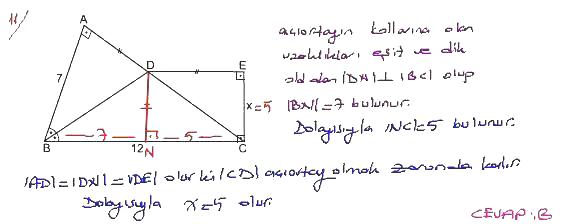 11)
A
D
E
7
x=5
7
5
B
12
N
C
açıortayın kollarına olan
uzaklıkları eşit ve dik
olduğundan |DN|⊥|BC| olup
|BN|=7 bulunur.
Dolayısıyla |NC|=5 bulunur.
|AD|=|DN|=|DE| olur ki |CD| açıortay olmak zorunda kalır.
Dolayısıyla x=5 olur.
CEVAP: B